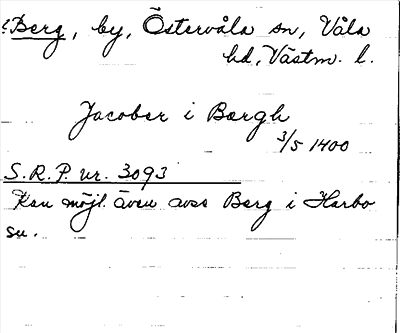 Berg, by, Östervåla sn, Våla
hd, Västm. l.
Jacober i Bærgh
3/5 1400
S.R.P. nr. 3093
Kan möjl. även avse Berg i Harbo
sn.